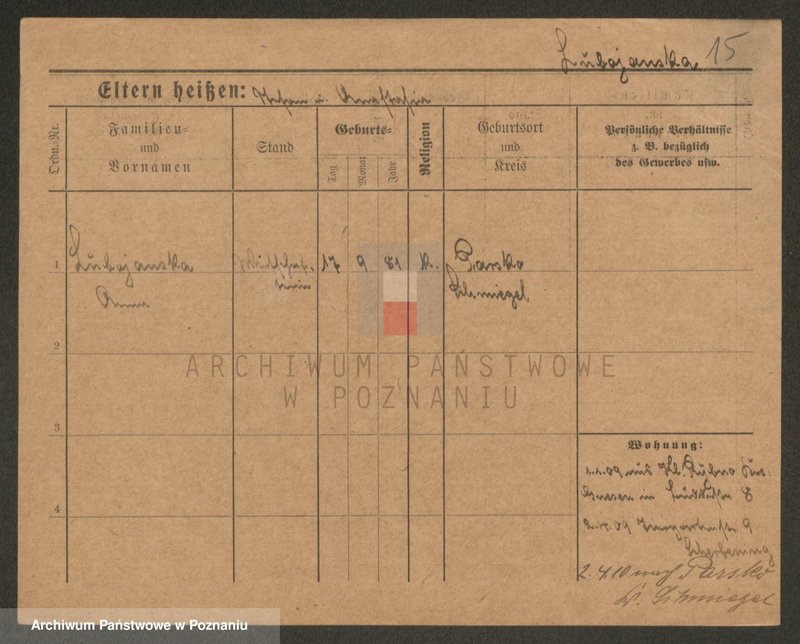 Lubojanska 15
Eltern heißen: Stefan u. Anastasia
Ordn. Nr.
Familien- und Vornamen
Stand
Geburts-
Tag
Monat
Jahr
Religion
Geburtsort und Kreis
Persönliche Verhältnisse
z. B. bezüglich
des Gewerbes usw.
1 Lubojanska 17 9 81 k. Parsko
Anna Schmiegel
2
ARCHIWUM PAŃSTWOWE
W POZNANIU
3
Wohnung:
1.1.09 aus Kl. Rubno
Gnesen in 8
4
09 9
2.4.10 nach Parsko
Kr. Schmiegel
Archiwum Państwowe w Poznaniu